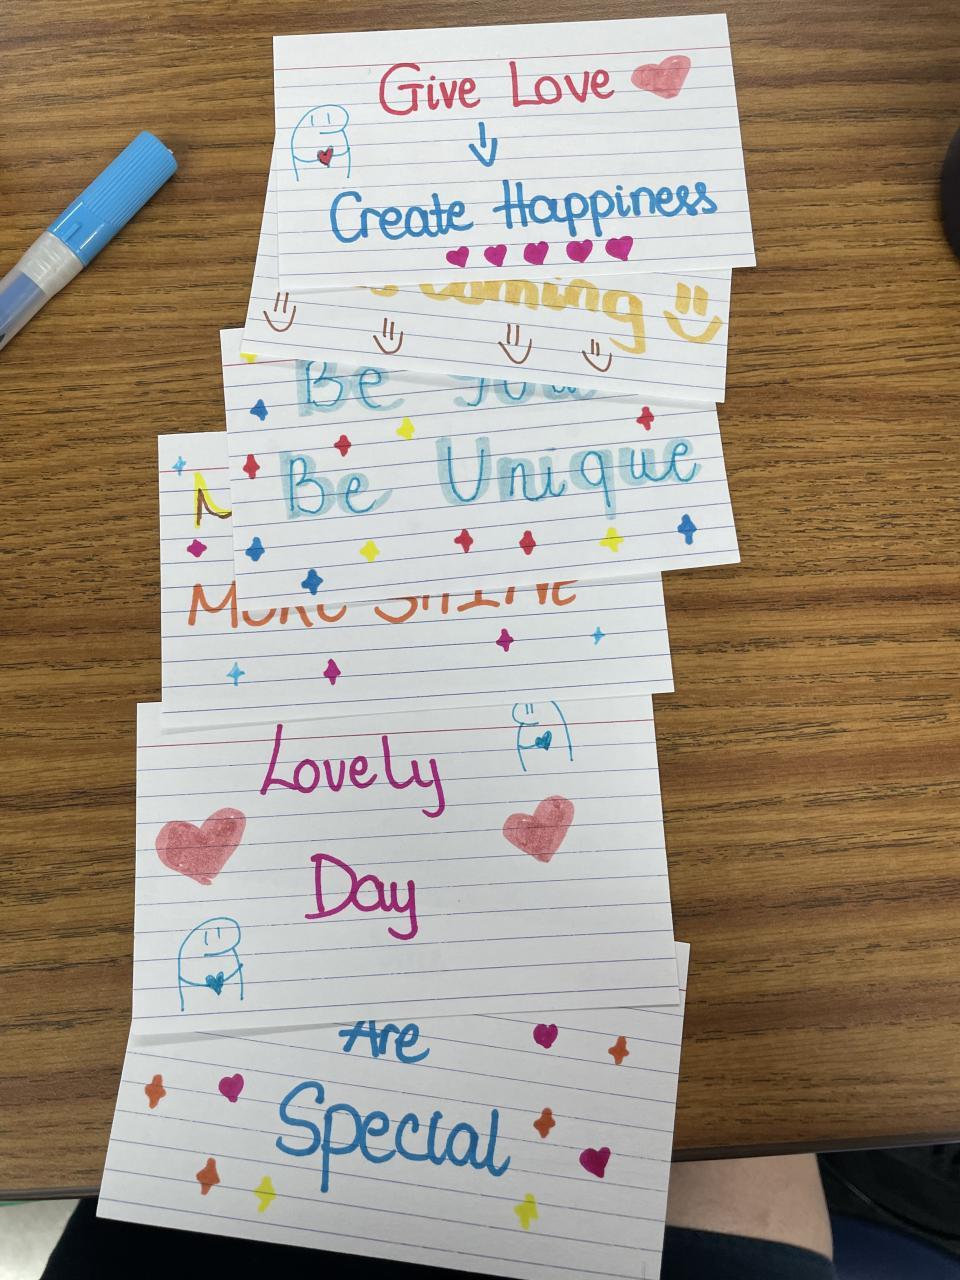 Give Love
Create Happiness
Coming
Be You
Be Unique
MORE SHINE
Lovely
Day
Are
Special